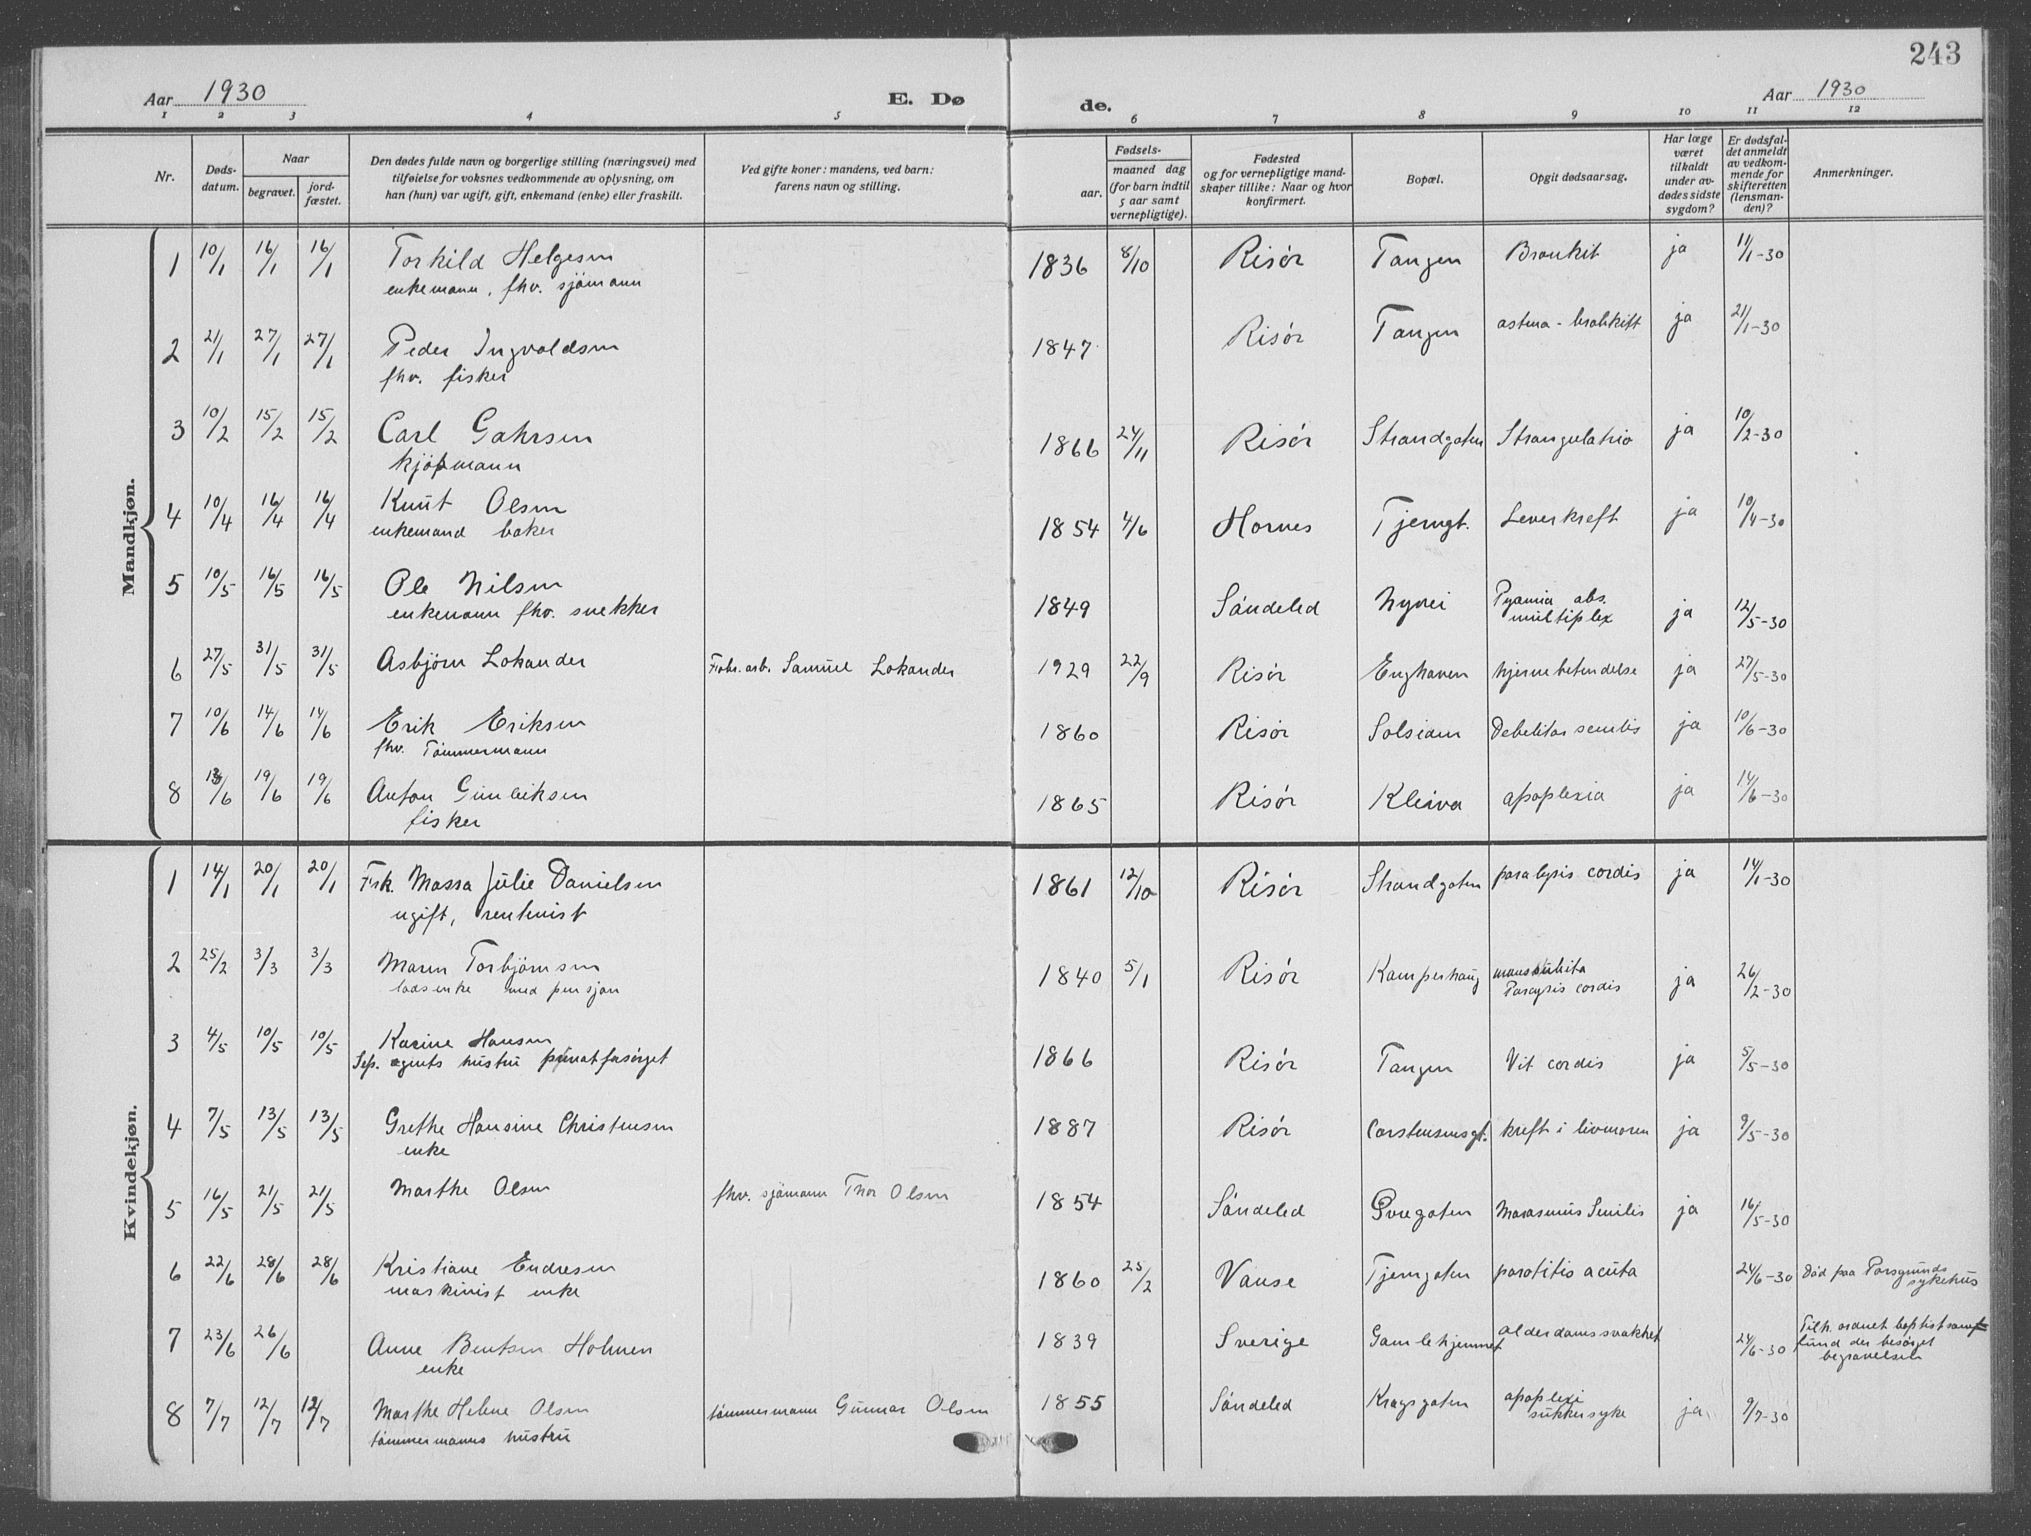 243
Aar 1930
E. Dø
de.
Aar 1930
1 2 3 4 5 6 7 8 9 10 11 12
Nr.
Døds-
datum.
Naar
begravet.
jord-
fæstet.
Den dødes fulde navn og borgerlige stilling (næringsvei) med
tilføielse for voksnes vedkommende av oplysning, om
han (hun) var ugift, gift, enkemand (enke) eller fraskilt.
Ved gifte koner: mandens, ved barn:
farens navn og stilling.
Fødsels-
aar.
maaned dag
(for barn indtil
5 aar samt
vernepligtige).
Fødested
og for vernepligtige mand-
skaper tillike: Naar og hvor
konfirmert.
Bopæl.
Opgit dødsaarsag.
Har læge
været
tilkaldt
under av-
dødes sidste
sygdom?
Er dødsfal-
det anmeldt
av vedkom-
mende for
skifteretten
(lensman-
den)?
Anmerkninger.
Mandkjøn.
1 10/1 16/1 16/1 Torkild Helgesen 1836 8/10 Risør Tangen Bronkit ja 11/1-30
enkemann, fhv. sjømann
2 21/1 27/1 27/1 Peder Ingvoldsen 1847 Risør Tangen astma - ja 21/1-30
fhv. fisker
3 10/2 15/2 15/2 Carl Gahrsen 1866 24/11 Risør Strandgaten Strangulatio ja 10/2-30
kjøpmann
4 10/4 16/4 16/4 Knut Olsen 1854 4/6 Hornes Tjerngt. Leverkreft ja 10/4-30
enkemand baker
5 10/5 16/5 16/5 Ole Nilsen 1849 Søndeled Nyvei Pyämia abs. ja 12/5-30
enkemann fhv. snekker multiplex
6 27/5 31/5 31/5 Asbjørn Lokander Fabr. arb. Samuel Lokander 1929 22/9 Risør Enghaven hjernebetendelse ja 27/5-30
7 10/6 14/6 14/6 Erik Eriksen 1860 Risør Solsiden Debilitas senilis ja 10/6-30
fhv. Tømmermann
8 13/6 19/6 19/6 Anton Gunleiksen 1865 Risør Kleiva apoplexia ja 14/6-30
fisker
Kvindekjøn.
1 14/1 20/1 20/1 Frk. Massa Julie Danielsen 1861 12/10 Risør Strandgaten paralysis cordis ja 14/1-30
ugift, rentenist
2 25/2 3/3 3/3 Maren Torbjørnsen 1840 5/1 Risør Kamperhaug mors subita ja 26/2-30
losenke med pensjon Paralysis cordis
3 4/5 10/5 10/5 Karine Hansen 1866 Risør Tangen Vit cordis ja 5/5-30
Sep. agents hustru privat forsørget
4 7/5 13/5 13/5 Grethe Hansine Christensen 1887 Risør Carstensensgt. kreft i livmoren ja 9/5-30
enke
5 16/5 21/5 21/5 Marthe Olsen fhv. sjømann Thor Olsen 1854 Søndeled Øvregaten Marasmus Senilis ja 16/5-30
6 22/6 28/6 28/6 Kristiane Endresen 1860 25/2 Vanse Tjerngaten parotitis acuta 24/6-30 Død paa Porsgrunds
maskinist enke sykehus
7 23/6 26/6 Anne Bentsen Holmen 1839 Sverige Gamlehjemmet alderdomssvakhet 24/6-30 Tilh. ordnet baptistsam-
enke fund der besørget
begravelsen
8 7/7 12/7 12/7 Marthe Helene Olsen tømmermann Gunnar Olsen 1855 Søndeled Kragsgaten apoplexi ja 9/7-30
tømmermanns hustru sukkersyke